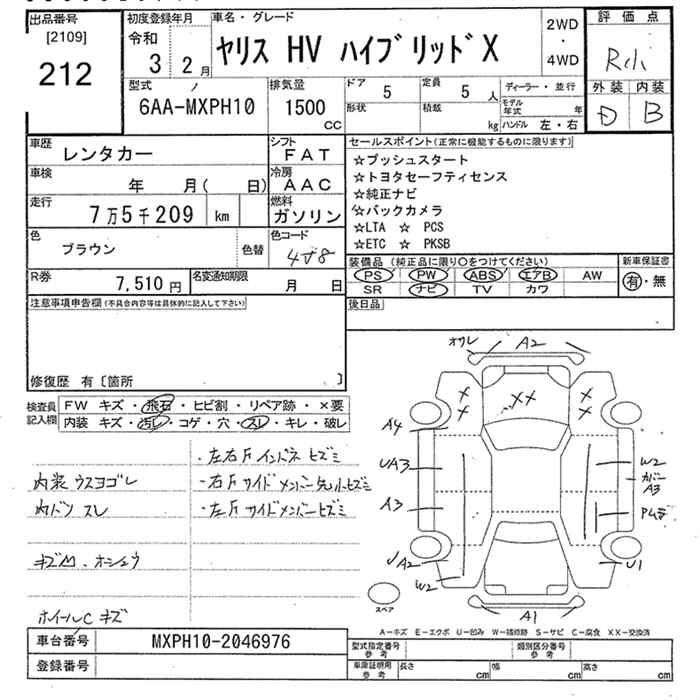 出品番号
[2109]
212
初度登録年月
令和
3 2月
車名・グレード
ヤリス HV ハイブリッド X
2WD
・
4WD
評価点
外装 内装
D B
型式
6AA-MXPH10
排気量
1500
CC
ドア 5
定員 5 人
形状
積載 kg
ディーラー・並行
モデル年式 年
ハンドル 左・右
車歴 レンタカー
シフト FAT
車検 年 月( 日)
冷房 AAC
走行 7万5千209 km
燃料 ガソリン
色 ブラウン 色替
色コード
R券 7,510円
名変通知期限 月 日
セールスポイント(正常に機能するものに限ります)
☆プッシュスタート
☆トヨタセーフティセンス
☆純正ナビ
☆バックカメラ
☆LTA ☆ PCS
☆ETC ☆ PKSB
装備品(純正品に限り〇をつけてください)
PS PW ABS エアB AW
SR ナビ TV カワ
新車保証書
有・無
後日品
注意事項申告欄(不具合内容等は具体的に記入して下さい)
修復歴 有〔箇所 〕
検査員記入欄
FW キズ・飛石・ヒビ割・リペア跡・×要
内装 キズ・汚レ・コゲ・穴・スレ・キレ・破レ
・左右Fインドネヒズミ
内装ウスヨゴレ
・右Fサイドメンバー先小ヒズミ
内ドリスレ
・左Fサイドメンバーヒズミ
ホイールCキズ
オサレ A2
X X XX X X
A4
UA3
A3
W2
カバーA3
UA2
U1
W2
スペア
A1
A-キズ E-エクボ U-凹み W-補修跡 S-サビ C-腐食 XX-交換済
車台番号 MXPH10-2046976
登録番号
型式指定番号 参考
類別区分番号 参考
車庫証明用 参考
長さ cm 幅 cm 高さ cm